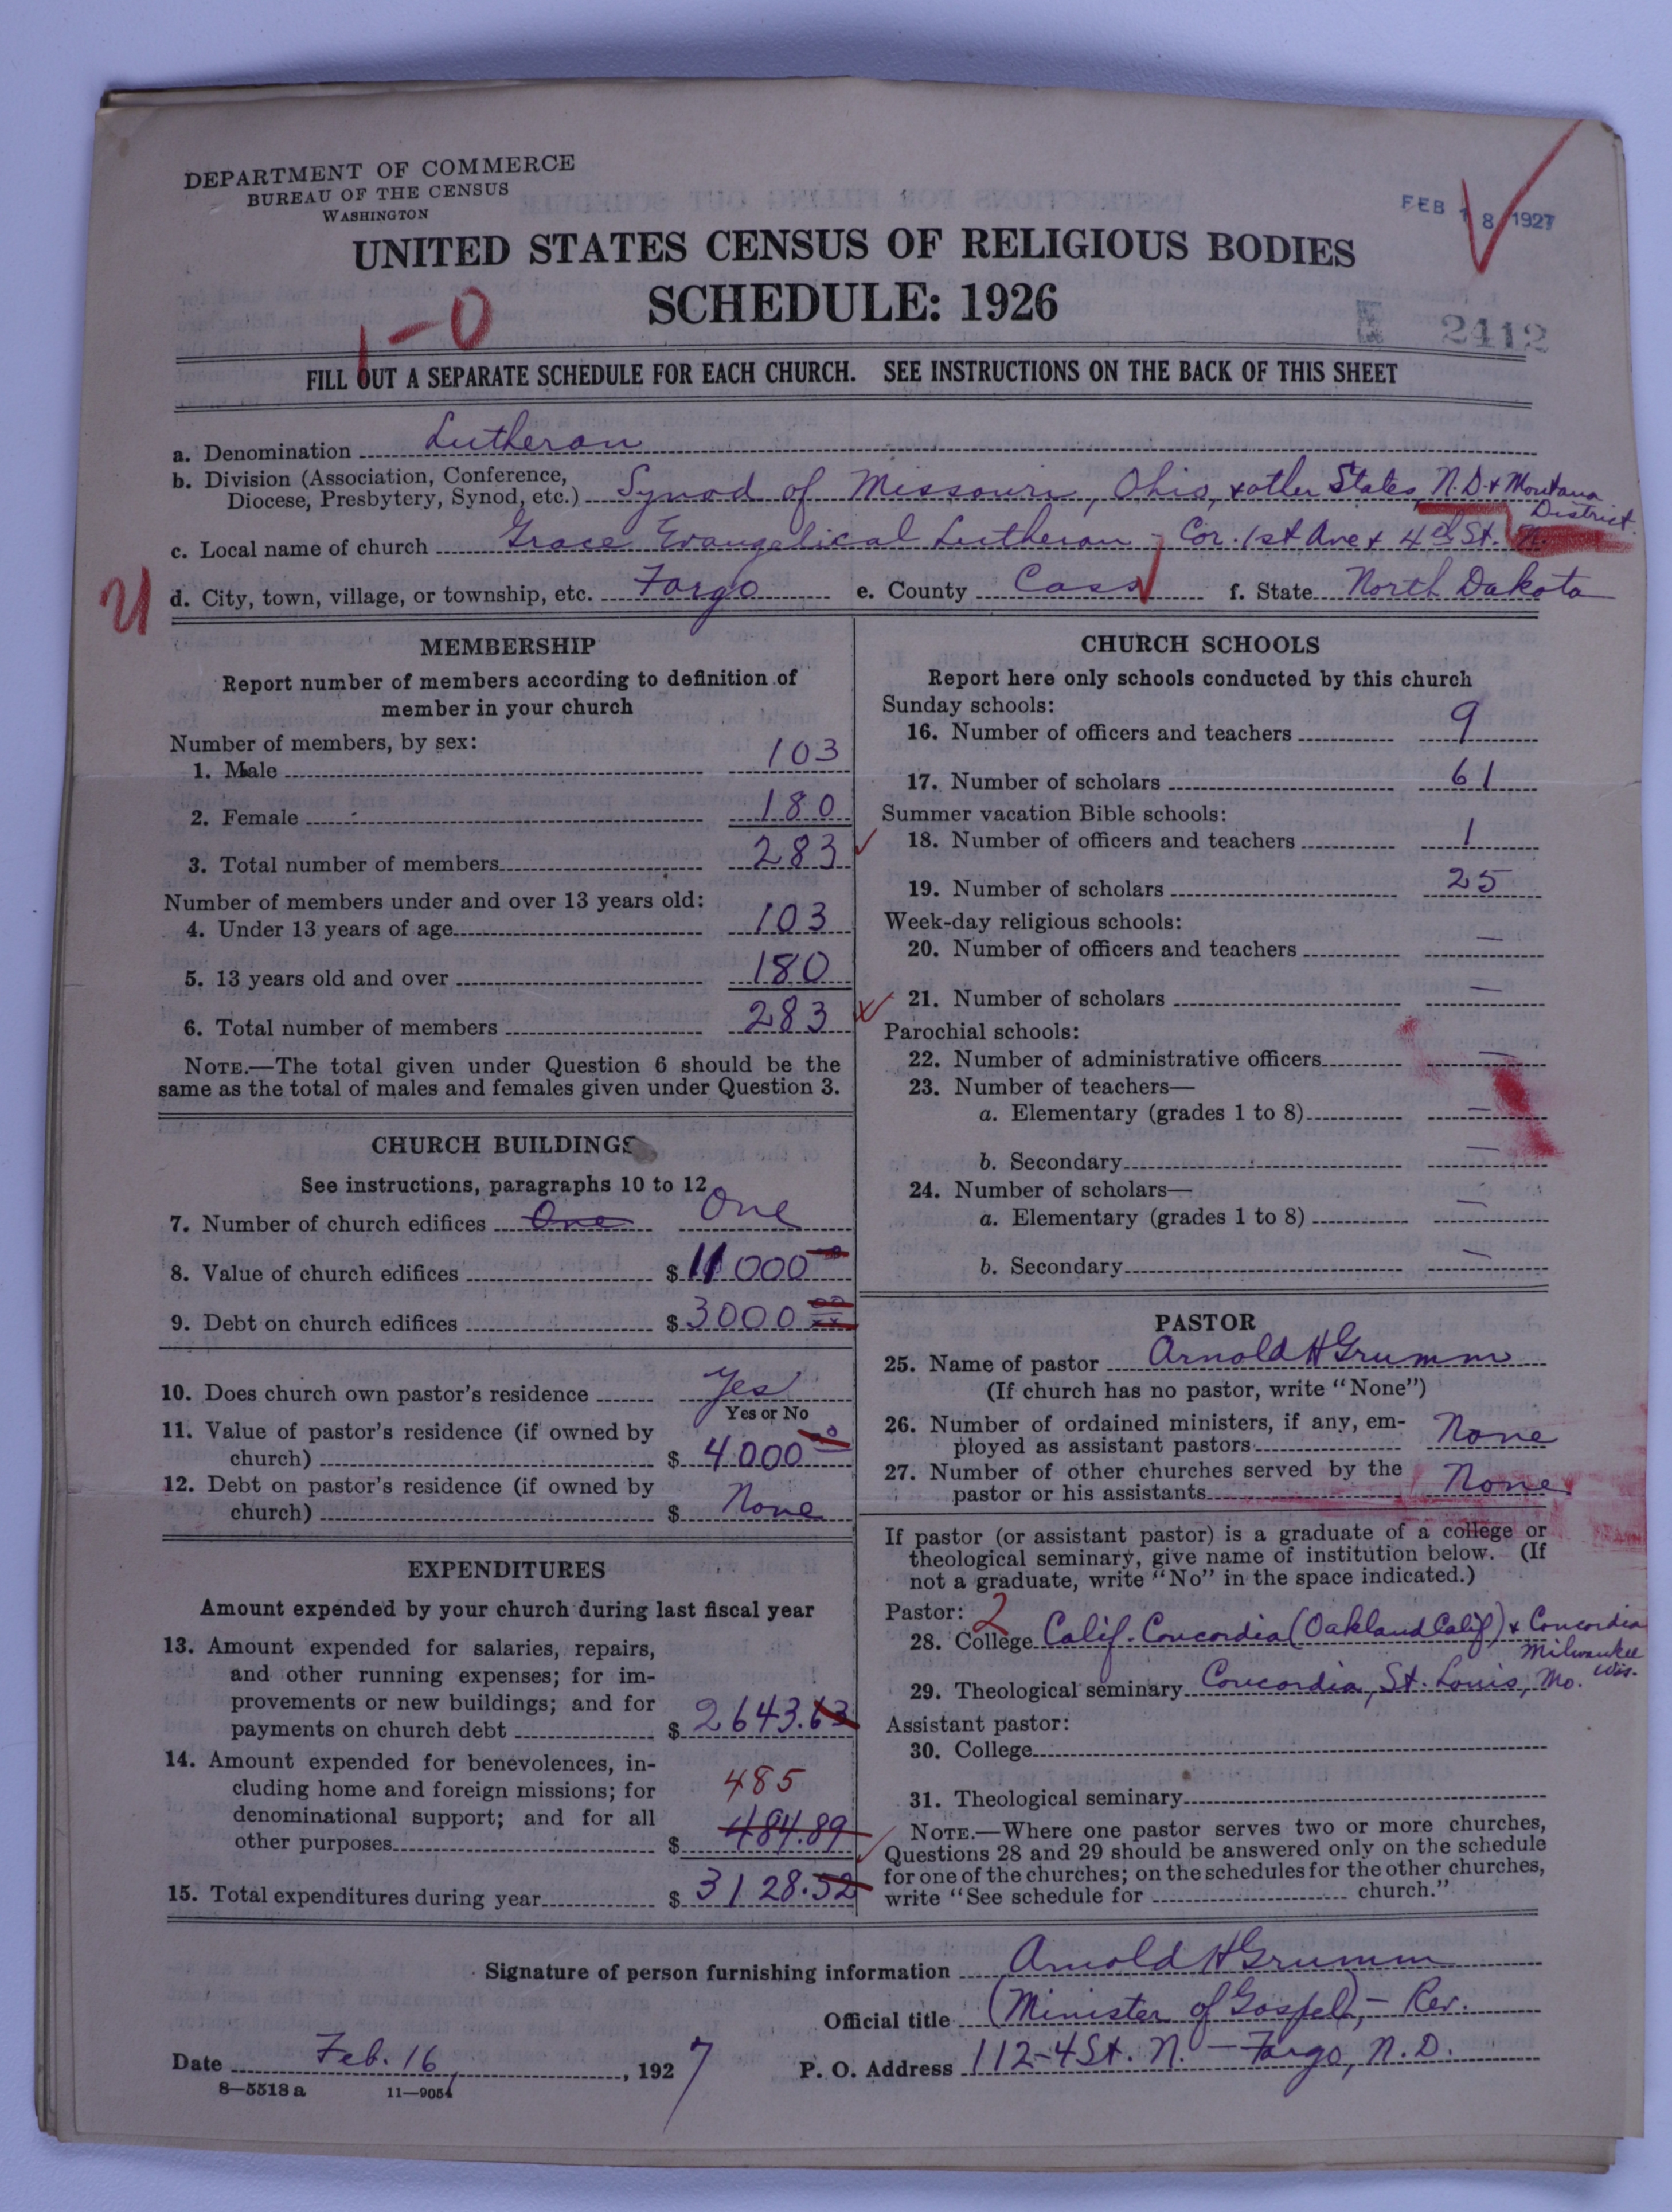 DEPARTMENT OF COMMERCE
BUREAU OF THE CENSUS
WASHINGTON
FEB 18 1927
UNITED STATES CENSUS OF RELIGIOUS BODIES
SCHEDULE: 1926
1-0
2412
FILL OUT A SEPARATE SCHEDULE FOR EACH CHURCH. SEE INSTRUCTIONS ON THE BACK OF THIS SHEET
a. Denomination Lutheran
b. Division (Association, Conference,
Diocese, Presbytery, Synod, etc.) Synod of Missouri, Ohio, & other States, N.D. & Montana
District.
c. Local name of church Grace Evangelical Lutheran - Cor. 1st Ave & 4th St. N.
d. City, town, village, or township, etc. Fargo e. County Cass f. State North Dakota
MEMBERSHIP
Report number of members according to definition of
member in your church
Number of members, by sex:
1. Male 103
2. Female 180
3. Total number of members 283
Number of members under and over 13 years old:
4. Under 13 years of age 103
5. 13 years old and over 180
6. Total number of members 283
NOTE.—The total given under Question 6 should be the
same as the total of males and females given under Question 3.
CHURCH BUILDINGS
See instructions, paragraphs 10 to 12
7. Number of church edifices One One
8. Value of church edifices $ 11000
9. Debt on church edifices $ 3000
10. Does church own pastor's residence Yes
Yes or No
11. Value of pastor's residence (if owned by
church) $ 4000
12. Debt on pastor's residence (if owned by
church) $ None
EXPENDITURES
Amount expended by your church during last fiscal year
13. Amount expended for salaries, repairs,
and other running expenses; for im-
provements or new buildings; and for
payments on church debt $ 2643.63
14. Amount expended for benevolences, in-
cluding home and foreign missions; for 485
denominational support; and for all
other purposes $ 484.89
15. Total expenditures during year $ 3128.52
CHURCH SCHOOLS
Report here only schools conducted by this church
Sunday schools:
16. Number of officers and teachers 9
17. Number of scholars 61
Summer vacation Bible schools:
18. Number of officers and teachers 1
19. Number of scholars 25
Week-day religious schools:
20. Number of officers and teachers —
21. Number of scholars —
Parochial schools:
22. Number of administrative officers —
23. Number of teachers—
a. Elementary (grades 1 to 8) —
b. Secondary —
24. Number of scholars—
a. Elementary (grades 1 to 8) —
b. Secondary —
PASTOR
25. Name of pastor Arnold H Grumm
(If church has no pastor, write "None")
26. Number of ordained ministers, if any, em-
ployed as assistant pastors None
27. Number of other churches served by the
pastor or his assistants None
If pastor (or assistant pastor) is a graduate of a college or
theological seminary, give name of institution below. (If
not a graduate, write "No" in the space indicated.)
Pastor: 2
28. College Calif. Concordia (Oakland Calif) & Concordia
Milwaukee
Wis.
29. Theological seminary Concordia, St. Louis, Mo.
Assistant pastor:
30. College
31. Theological seminary
NOTE.—Where one pastor serves two or more churches,
Questions 28 and 29 should be answered only on the schedule
for one of the churches; on the schedules for the other churches,
write "See schedule for church."
Signature of person furnishing information Arnold H Grumm
Official title (Minister of Gospel), - Rev.
Date Feb. 16, 1927 P. O. Address 112-4 St. N. - Fargo, N. D.
8—5518 a 11—9054